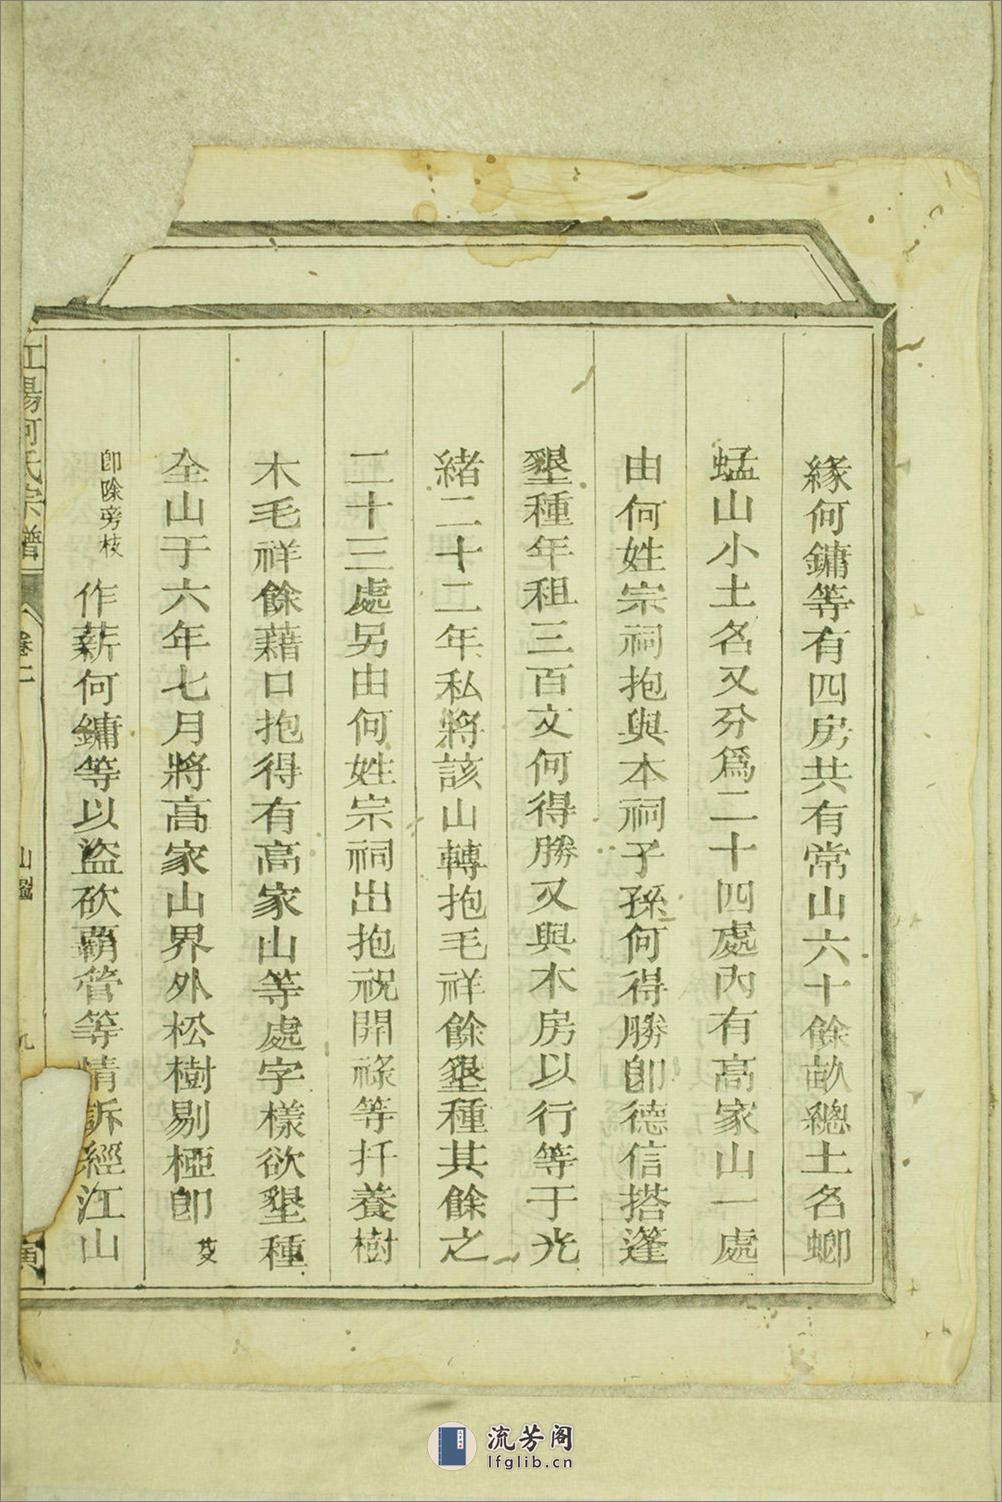 緣何鏞等有四房共有常山六十餘畝總土名螂
蜢山小土名又分為二十四處內有高家山一處
由何姓宗祠抱與本祠子孫何得勝卽德信搭篷
墾種年租三百文何得勝又與木房以行等于光
緒二十二年私將該山轉抱毛祥餘墾種其餘之
二十三處另由何姓宗祠出抱祝開祿等扦養樹
木毛祥餘藉口抱得有高家山等處字樣欲墾種
全山于六年七月將高家山界外松樹剔椏卽
卽除旁枝
作薪何鏞等以盜砍覇管等情訴經江山
江陽何氏宗譜
卷二
九
流芳阁
lfglib.cn